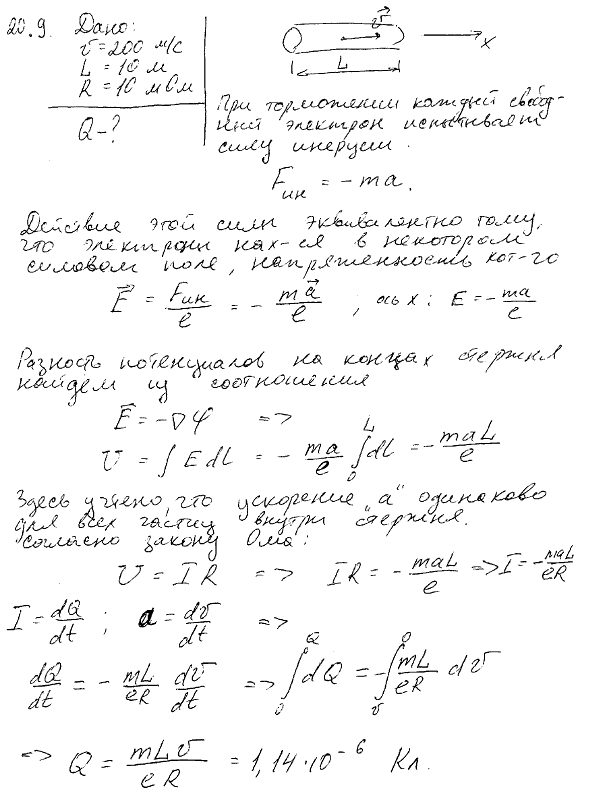 20.9. Дано:
v = 200 м/с
L = 10 м
R = 10 мОм
Q - ?
v
x
L
При торможении каждый свобод-
ный электрон испытывает
силу инерции.
Fин = -ma.
Действие этой силы эквивалентно тому,
что электроны нах-ся в некотором
силовом поле, напряженность кот-го
E = Fин/e = - ma/e ; ось x: E = -ma/e
Разность потенциалов на концах стержня
найдем из соотношения
E = -∇φ =>
U = ∫ E dL = - ma/e ∫₀ᴸ dL = - maL/e
Здесь учтено, что ускорение "a" одинаково
для всех частиц внутри стержня.
Согласно закону Ома:
U = IR => IR = - maL/e => I = - maL/eR
I = dQ/dt ; a = dv/dt =>
dQ/dt = - mL/eR dv/dt => ∫₀^Q dQ = ∫ᵥ⁰ - mL/eR dv
=> Q = mLv/eR = 1,14·10⁻⁶ Кл.